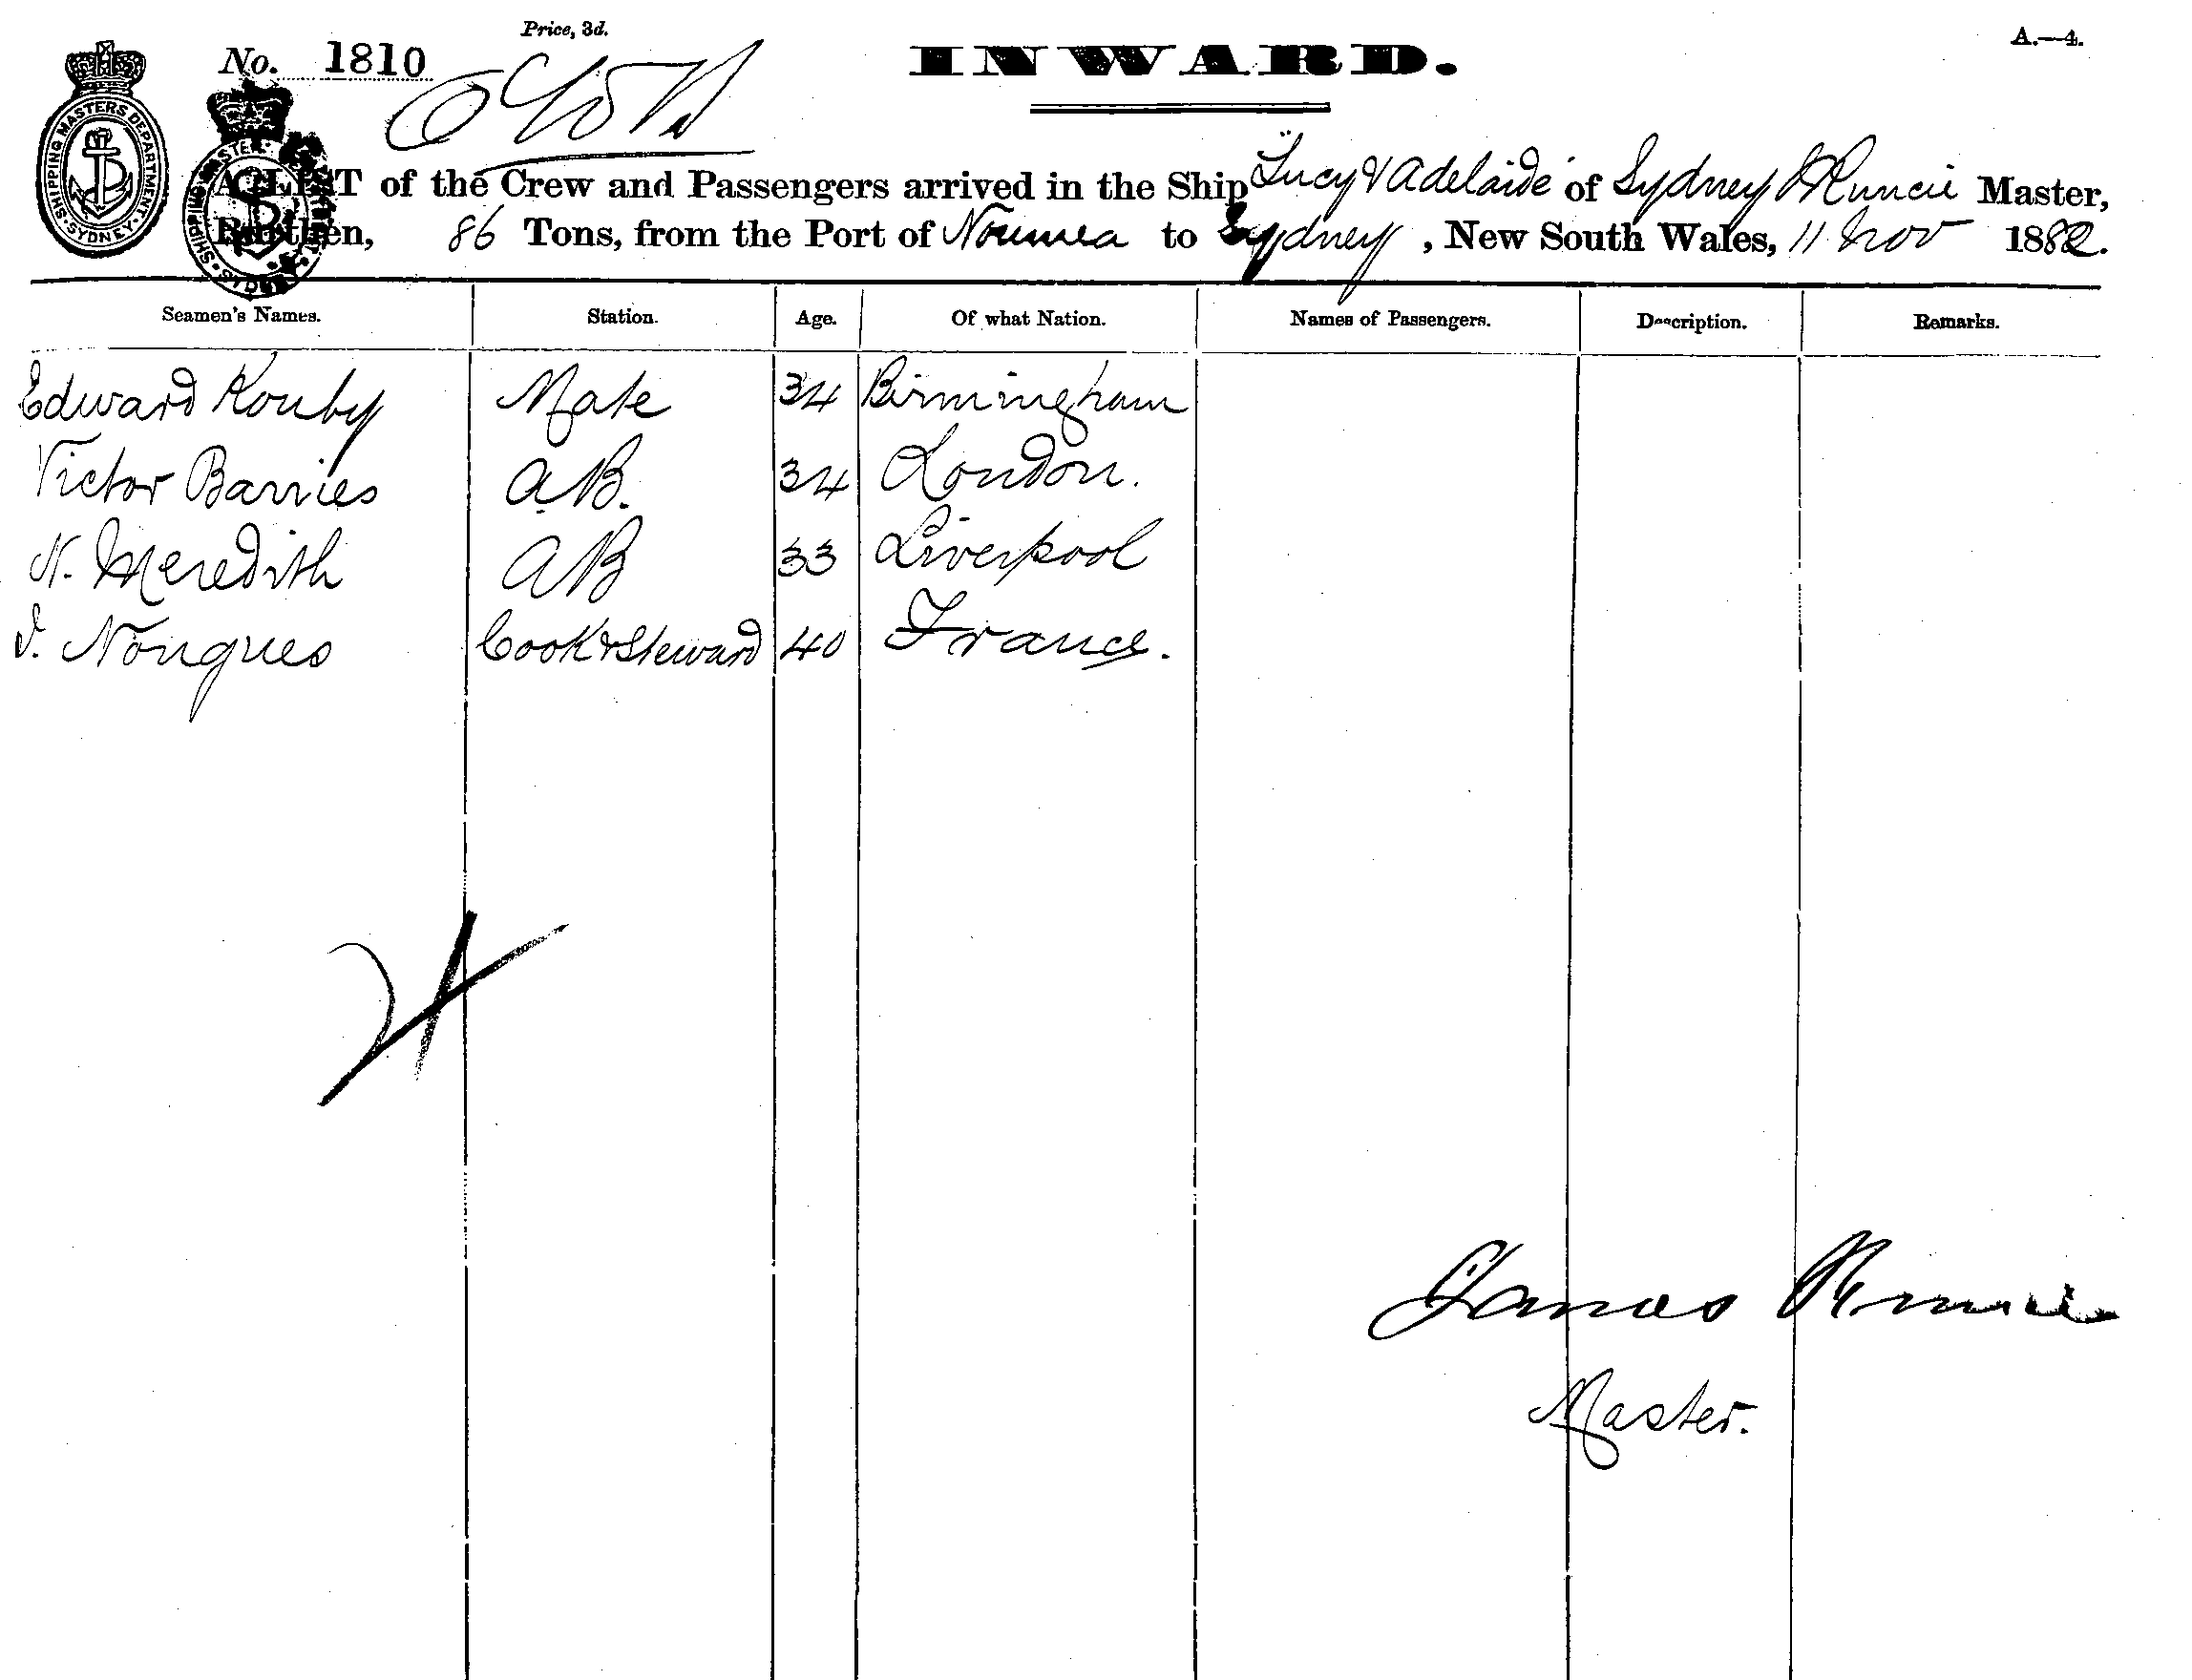 Price, 3d.
No. 1810
INWARD.
A.—4.
SHIPPING MASTERS DEPARTMENT
SYDNEY
A LIST of the Crew and Passengers arrived in the Ship Lucy & Adelaide of Sydney J Runcie Master,
Burthen, 86 Tons, from the Port of Noumea to Sydney, New South Wales, 11 Nov 1882.
Seamen's Names. Station. Age. Of what Nation. Names of Passengers. Description. Remarks.
Edward Mate 34 Birmingham
Victor Barries A.B. 34 London.
N. Meredith AB 33 Liverpool
Nongues Cook & Steward 40 France.
James Runcie
Master.